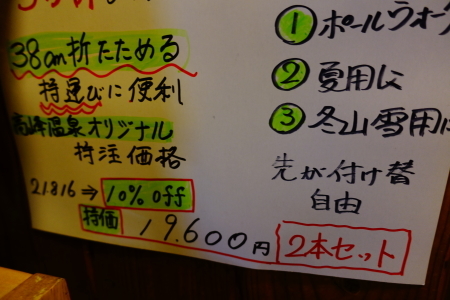 38cm折たためる
持運びに便利
高峰温泉オリジナル
特注価格
21.816⇒10% off
特価 19.600円
①ポールウォーク
②夏用に
③冬山雪用に
先が付け替
自由
2本セット